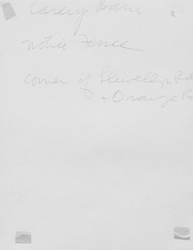 Casey Barn
Notice Fence
corner of Llewellyn Rd
+ Orange R